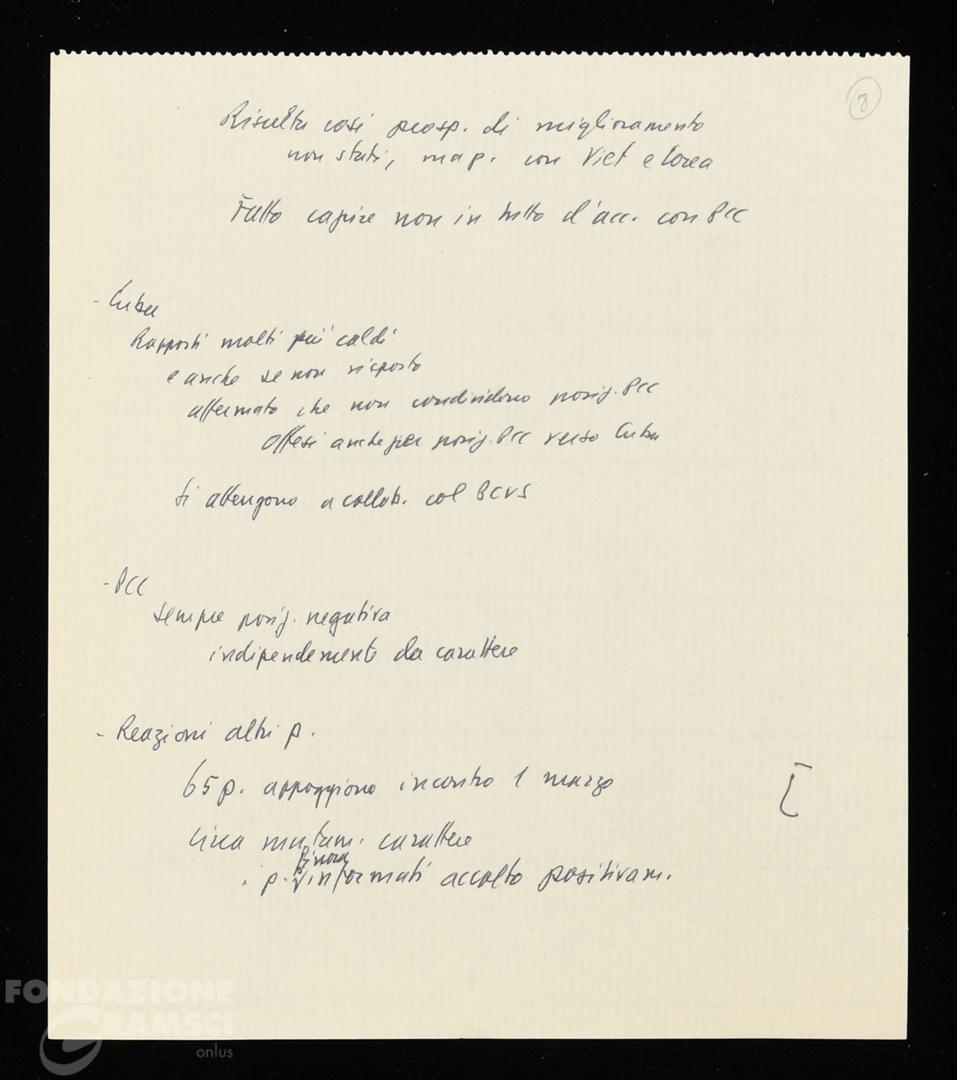 8
Risulta così prosp. di miglioramento
non stati, ma p. con Viet e Corea
Fatto capire non in tutto d'acc. con PCC
- Cuba
Rapporti molti più caldi
e anche se non risposto
affermato che non condividono posiz. PCC
Offesi anche per posiz. PCC verso Cuba
Si attengono a collab. col PCUS
- PCC
sempre posiz. negativa
indipendemente da carattere
- Reazioni altri p.
65 p. appoggiono incontro 1 marzo
Circa mutam. carattere
finora
. p. informati accolto positivam.
FONDAZIONE
GRAMSCI
onlus